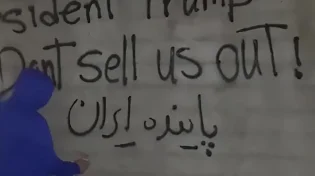 sident Trump
Dont sell us out!
پاینده ایران